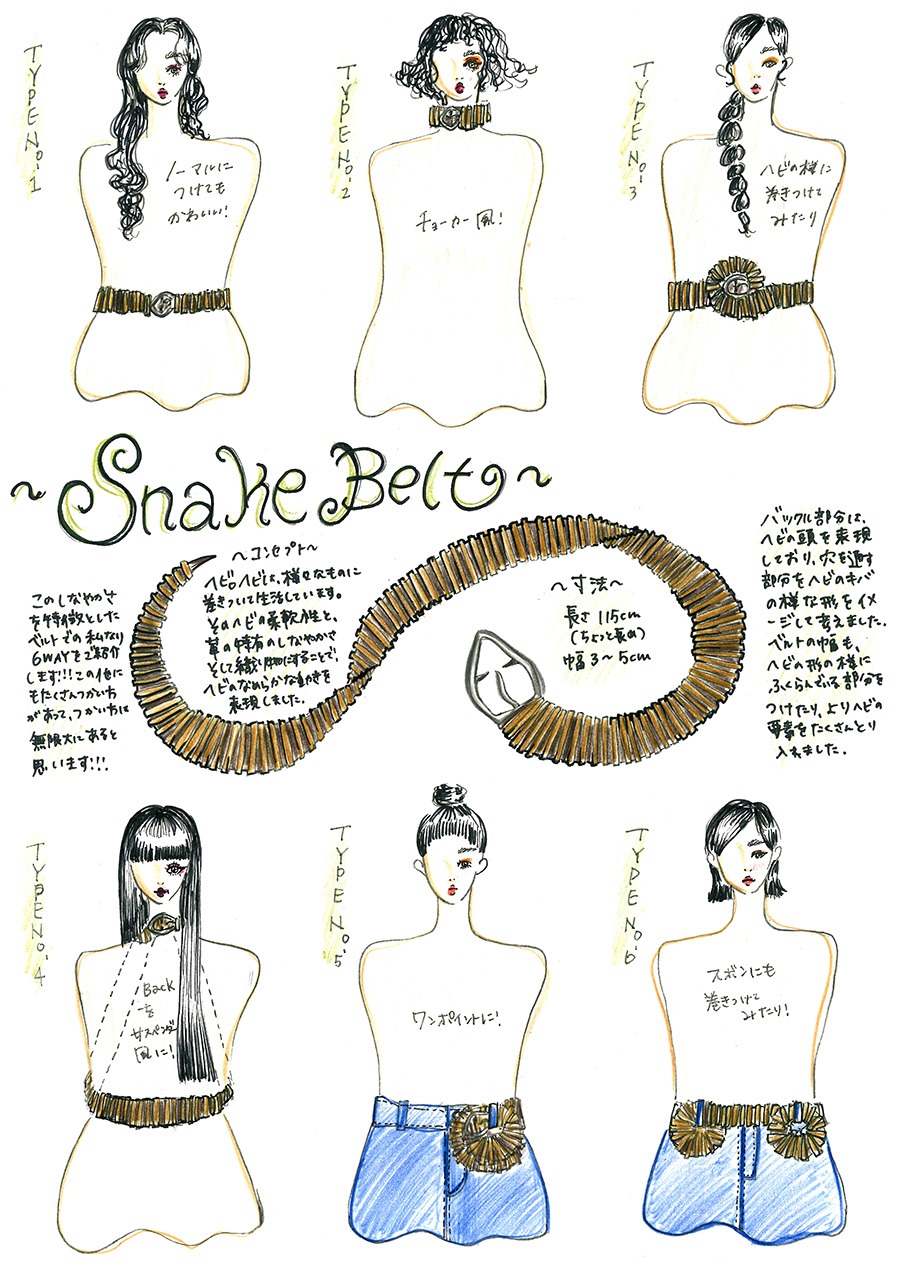 TYPE No.1
ノーマルに
つけても
かわいい!
TYPE No.2
チョーカー風!
TYPE No.3
ヘビの様に
巻きつけて
みたり
~Snake Belt~
~コンセプト~
ヘビ。ヘビは、様々なものに
巻きついて生活しています。
そのヘビの柔軟性と、
革の特有のしなやかさ
そして繊に
することで、
ヘビのなめらかな動きを
表現しました。
このしなやかさ
を特徴とした
ベルトでの私なり
6WAYをご紹介
します!!!この他に
もたくさんつかい方
があって、つかい方は
無限大にあると
思います!!!
~寸法~
長さ 115cm
(ちょっと長め)
幅 3~5cm
バックル部分は、
ヘビの頭を表現
しており、穴を通す
部分をヘビのキバ
の様な形をイメ
ージして考えました。
ベルトの幅も、
ヘビの形の様に
ふくらんでいる部分を
つけたり、よりヘビの
要素をたくさんとり
入れました。
TYPE No.4
Back
を
サスペンダー
風に!
TYPE No.5
ワンポイントに!
TYPE No.6
ズボンにも
巻きつけて
みたり!